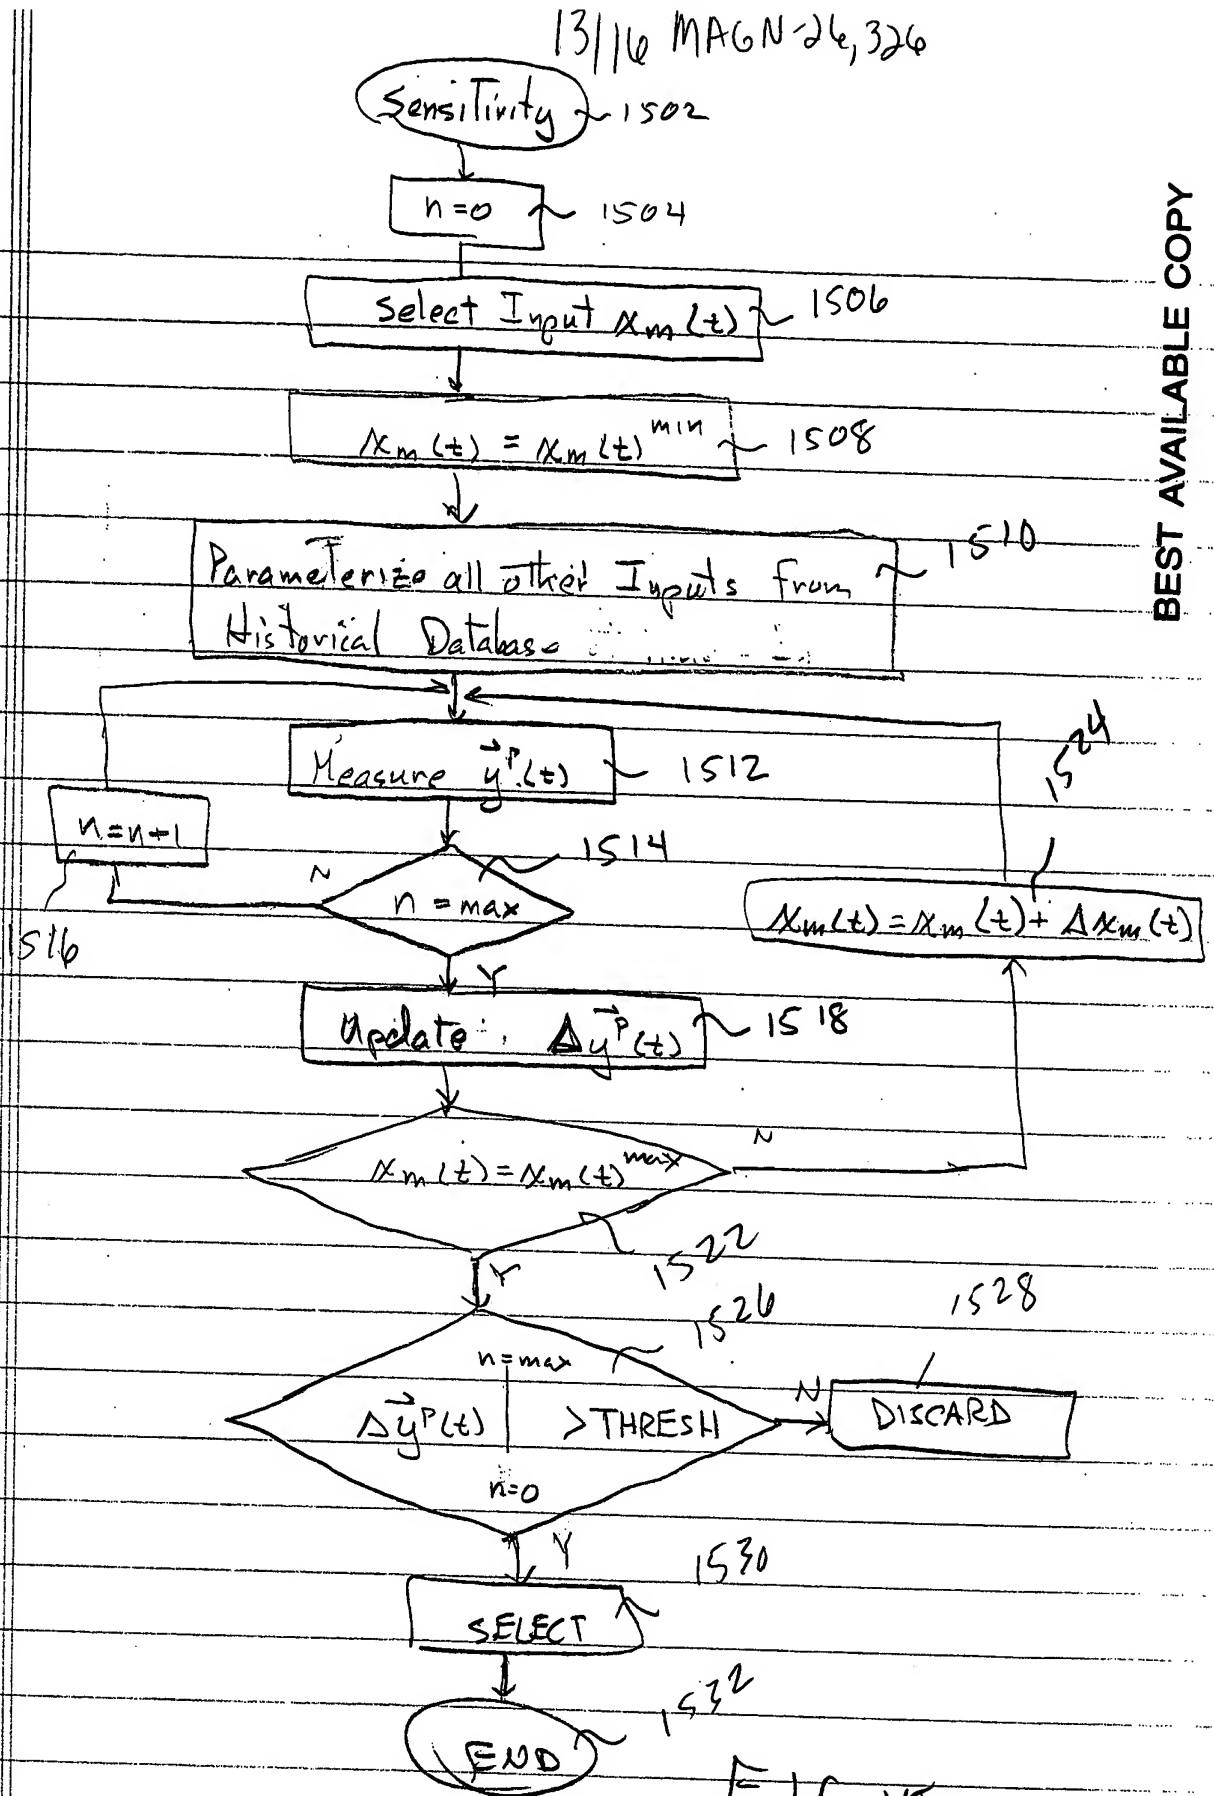 13/16 MAGN-26,326
Sensitivity 1502
n=0 1504
Select Input xₘ(t) 1506
xₘ(t) = xₘ(t)ᵐⁱⁿ 1508
Parameterize all other Inputs from 1510
Historical Database
Measure y⃗ᵖ(t) 1512
n=n+1
1516
n = max 1514
N
Y
xₘ(t) = xₘ(t) + Δxₘ(t) 1524
Update: Δy⃗ᵖ(t) 1518
xₘ(t) = xₘ(t)ᵐᵃˣ 1522
N
Y
n=max 1526
Δy⃗ᵖ(t) | > THRESH
n=0
N
DISCARD 1528
Y
SELECT 1530
END 1532
BEST AVAILABLE COPY